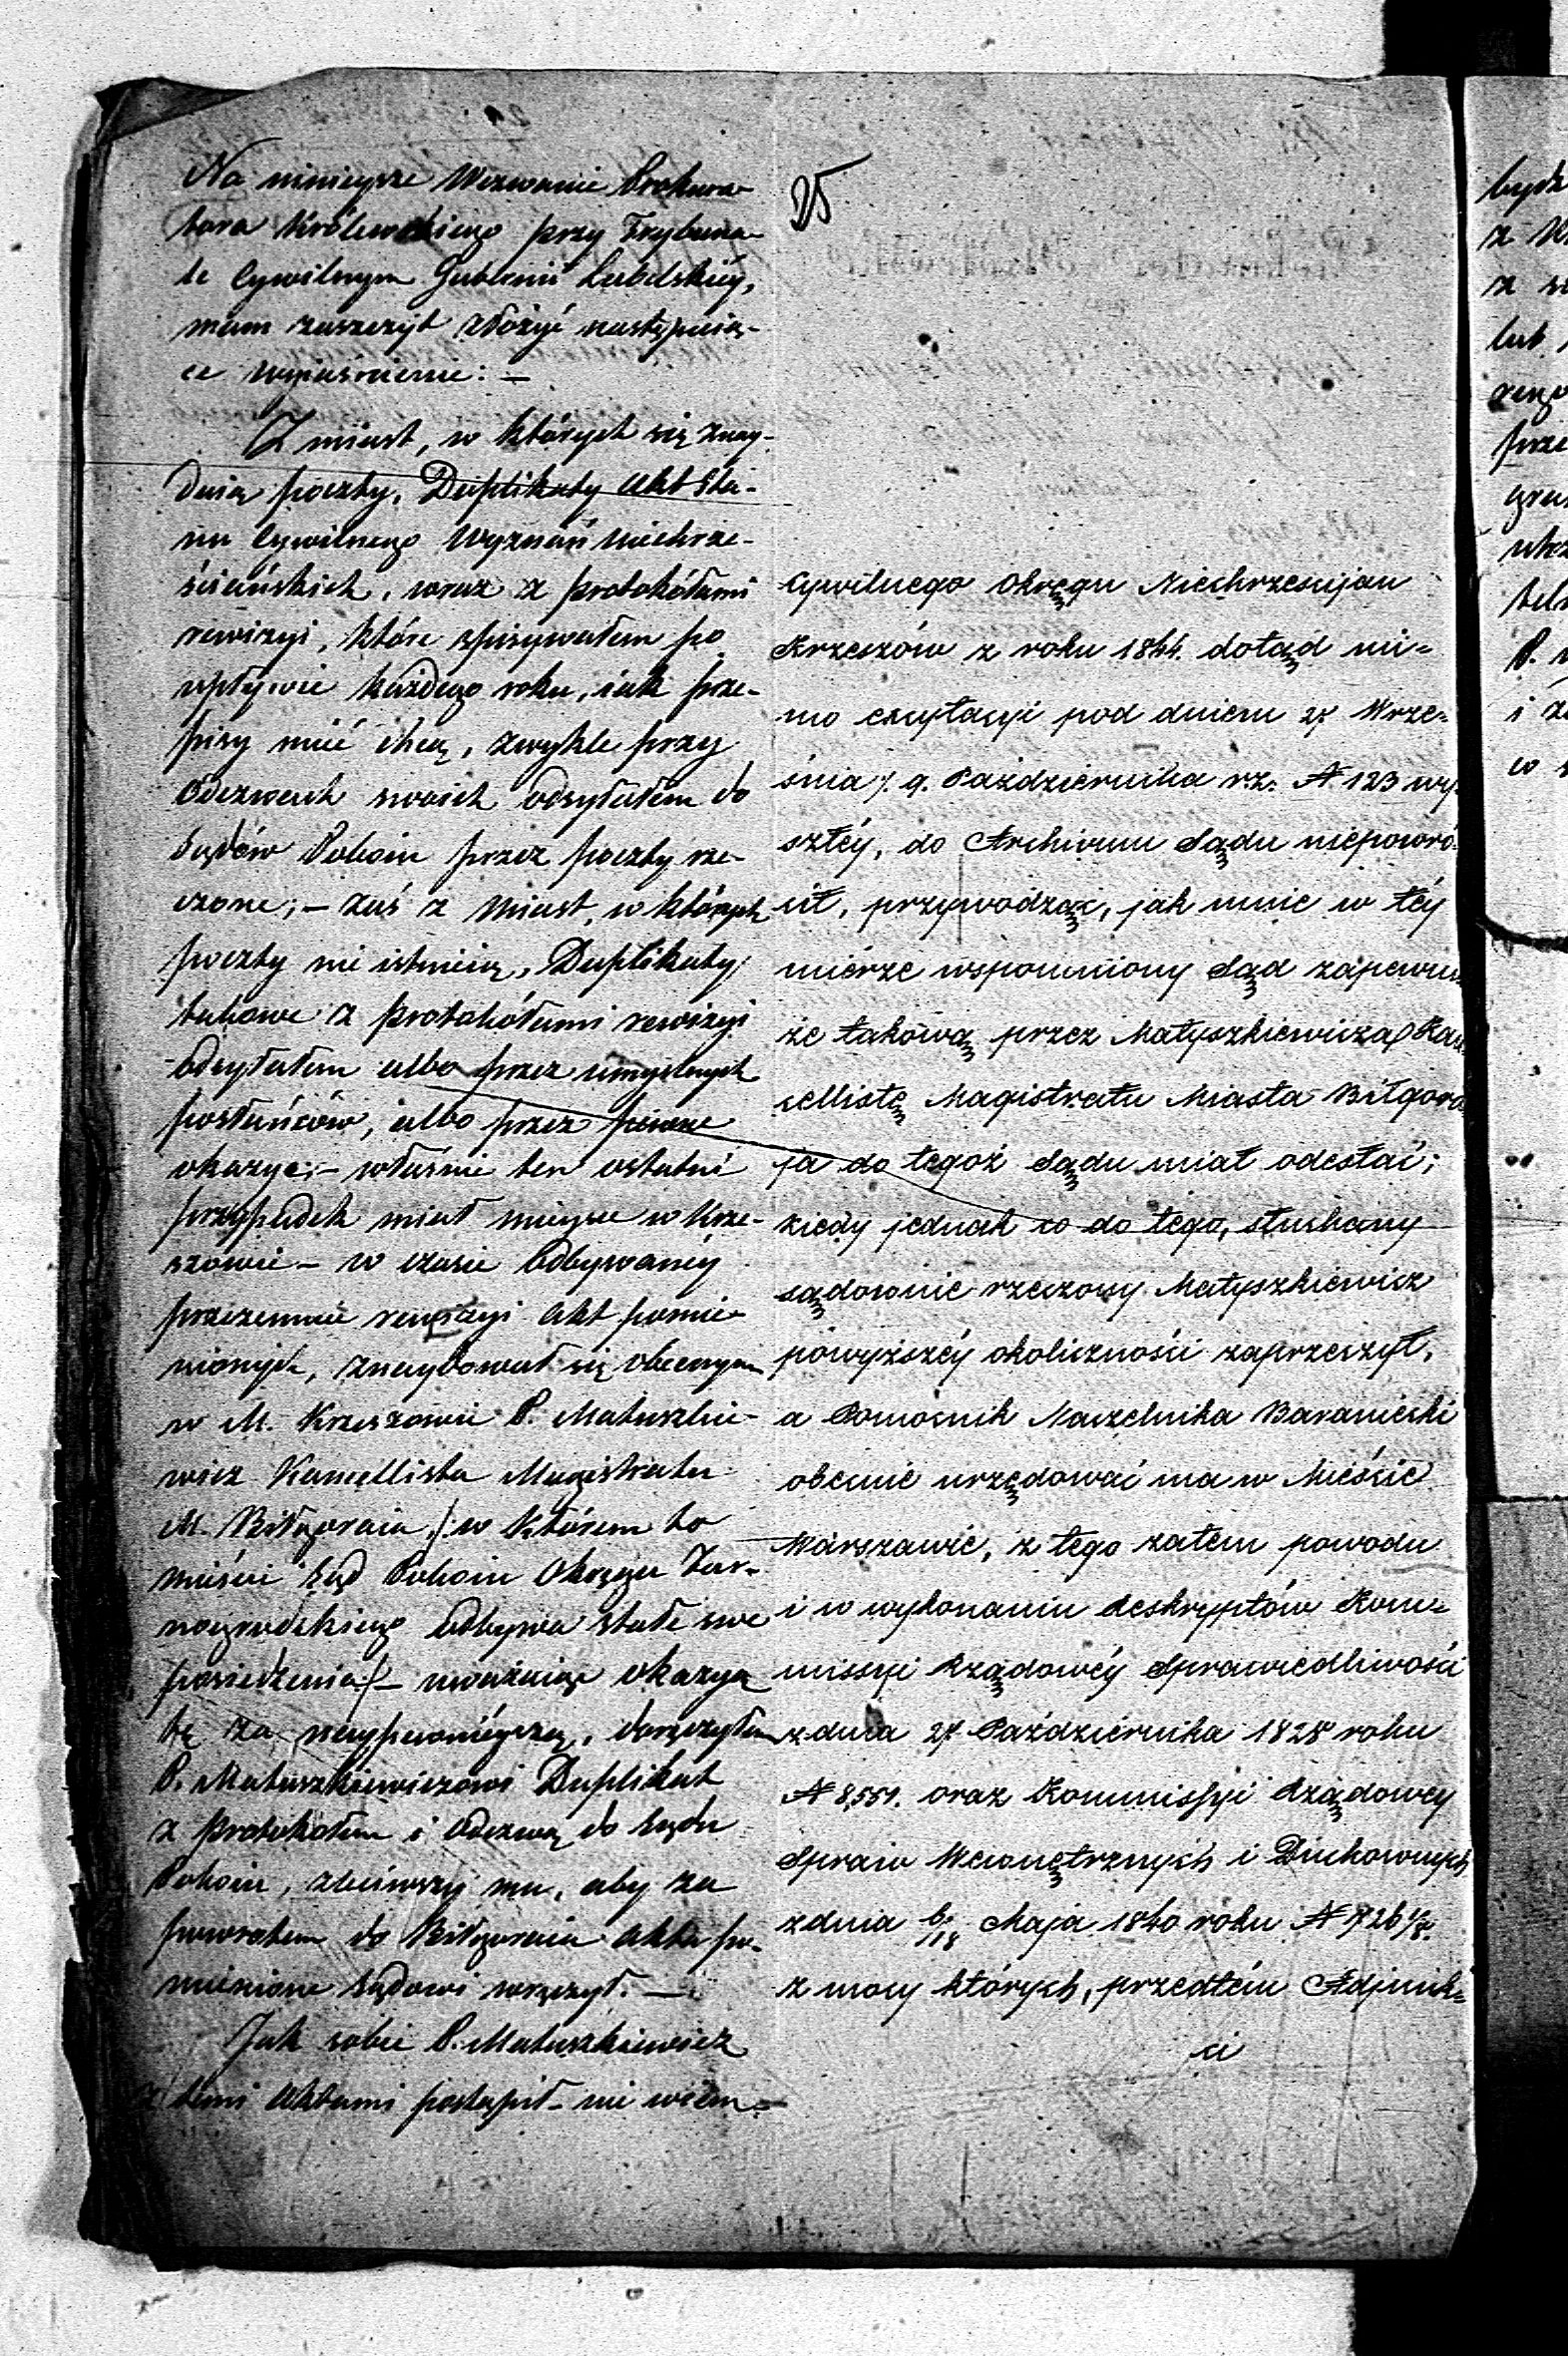 Na ninieysze Wezwanie Prokura-
tora Królewskiego przy Trybuna-
le Cywilnym Gubernii Lubelskiéy,
mam zaszczyt złożyć następuią-
ce wyiaśnienie: —
Z miast, w których się znay-
duią poczty, Duplikaty Akt Sta-
nu Cywilnego Wyznań niechrze-
ściańskich, wraz z protokółami
rewizyi, które spisywałem po
upływie każdego roku, iak prze-
pisy mieć chcą, zwykle przy
Odezwach swoich odsyłałem do
Sądów Pokoiu przez poczty rze-
czone; — zaś z Miast, w których
poczty nie istnieią, Duplikaty
takowe z protokółami rewizyi
odsyłałem albo przez umyślnych
posłańców, albo przez pewne
okazye; — właśnie ten ostatni
przypadek miał mieysce w Krze-
szowie — w czasie odbywaney
przezemnie rewizyi Akt pomie-
nionych, znaydował się obecnym
w M. Krzeszowie P. Matuszkie-
wicz Kancellista Magistratu
M. Biłgoraia /: w którem to
mieście Sąd Pokoiu Okręgu Tar-
nogrodzkiego odbywa stałe swe
posiedzenia /: — uważaiąc okazyą
tę za naypewnieyszą, doręczyłem
P. Matuszkiewiczowi Duplikat
z protokółem i Odezwą do Sądu
Pokoiu, zleciwszy mu, aby za
powrotem do Biłgoraia Akta po-
mienione Sądowi wręczył. —
Jak sobie P. Matuszkiewicz
z temi Aktami postąpił — nie wiem —
25
Cywilnego Okręgu Niechrzescijan
Krzeszów z roku 1844. dotąd mi-
mo excytacyi pod dniem 27 Wrze-
śnia /. 9. Października r.z. N. 123 wy-
szłéy, do Archivum Sądu niepowró-
cił, przywodząc, jak mnie w téy
mierze wspomniony Sąd zapewnia
że takową przez Matyszkiewicza Kan-
cellistę Magistratu Miasta Biłgora-
ja do tegoż Sądu miał odesłać;
kiedy jednak co do tego, słuchany
sądownie rzeczony Matyszkiewicz
powyższéy okoliczności zaprzeczył,
a Pomocnik Naczelnika Baraniecki
obecnie urzędować ma w Mieście
Warszawie, z tego zatem powodu
i w wykonaniu deskryptów Kom-
missyi Rządowéy Sprawiedliwości
z dnia 27 Października 1828 roku
N 8,551. oraz Kommissyi Rządowey
Spraw Wewnętrznych i Duchownych
z dnia 6/18 Maja 1840 roku
z mocy których, przedtém Adjunk-
ci